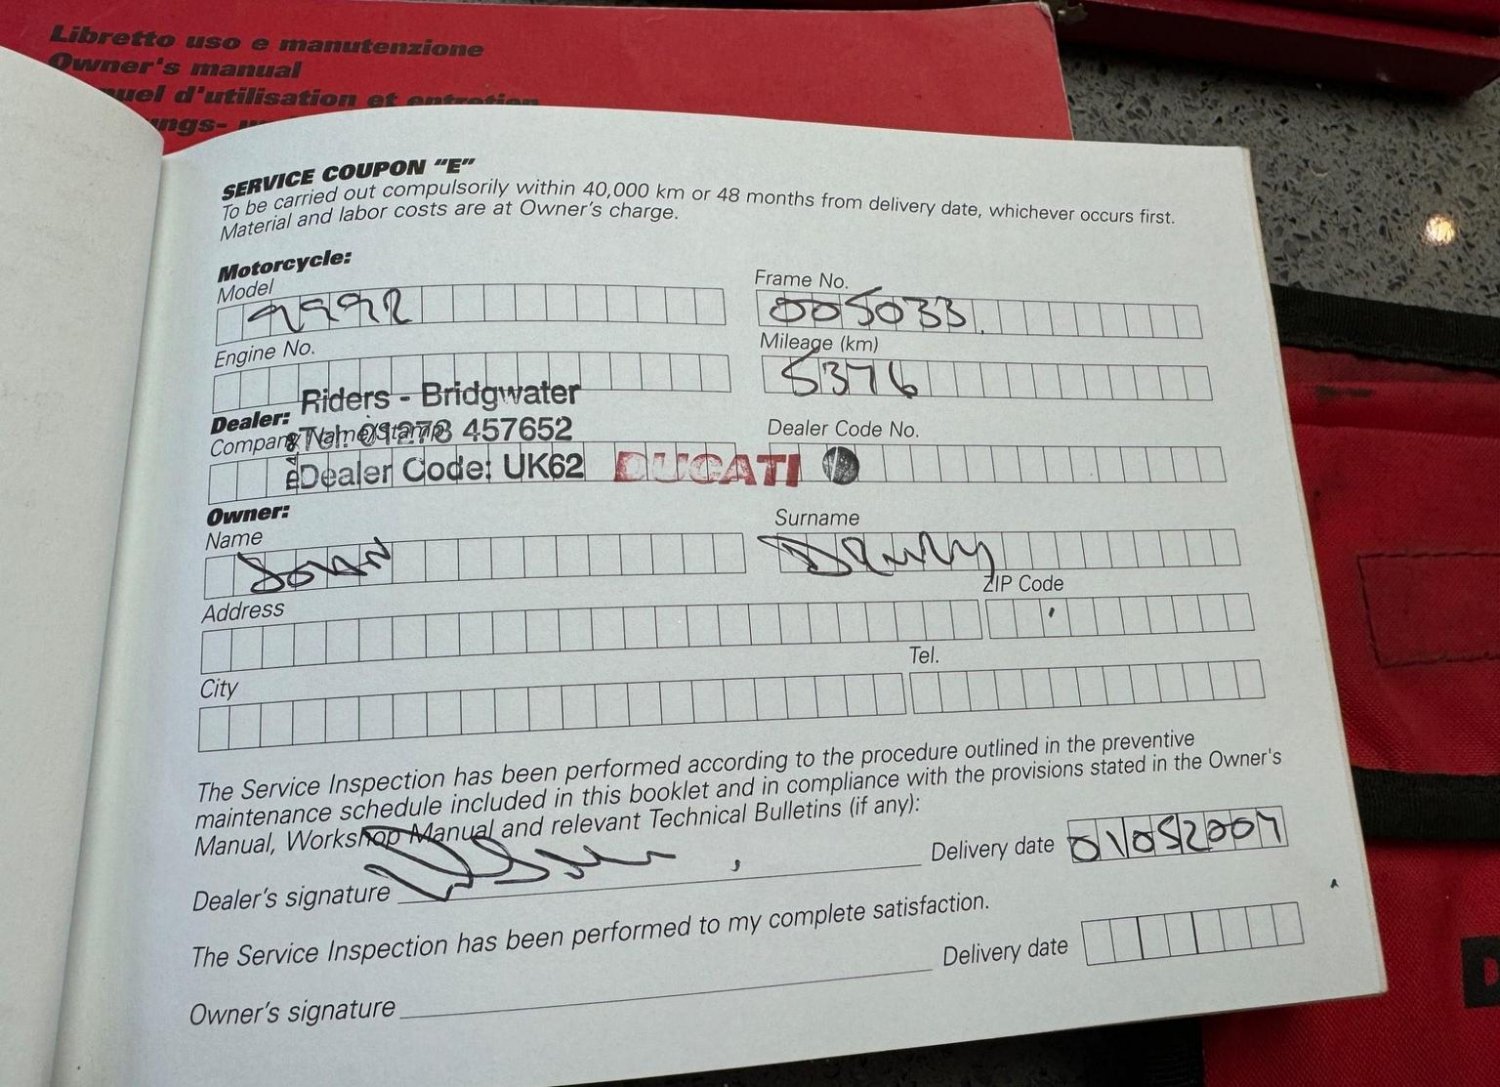 Libretto uso e manutenzione
Owner's manual
uel d'utilisation et entretien
ngs-
SERVICE COUPON "E"
To be carried out compulsorily within 40,000 km or 48 months from delivery date, whichever occurs first.
Material and labor costs are at Owner's charge.
Motorcycle:
Model
Frame No.
999R
005033
Engine No.
Mileage (km)
5376
Riders - Bridgwater
Dealer:
Company Name/stamp
Tel: 01278 457652
Dealer Code No.
Dealer Code: UK62
DUCATI
Owner:
Name
Surname
Address
ZIP Code
City
Tel.
The Service Inspection has been performed according to the procedure outlined in the preventive
maintenance schedule included in this booklet and in compliance with the provisions stated in the Owner's
Manual, Workshop Manual and relevant Technical Bulletins (if any):
Dealer's signature
Delivery date 01052007
The Service Inspection has been performed to my complete satisfaction.
Owner's signature
Delivery date